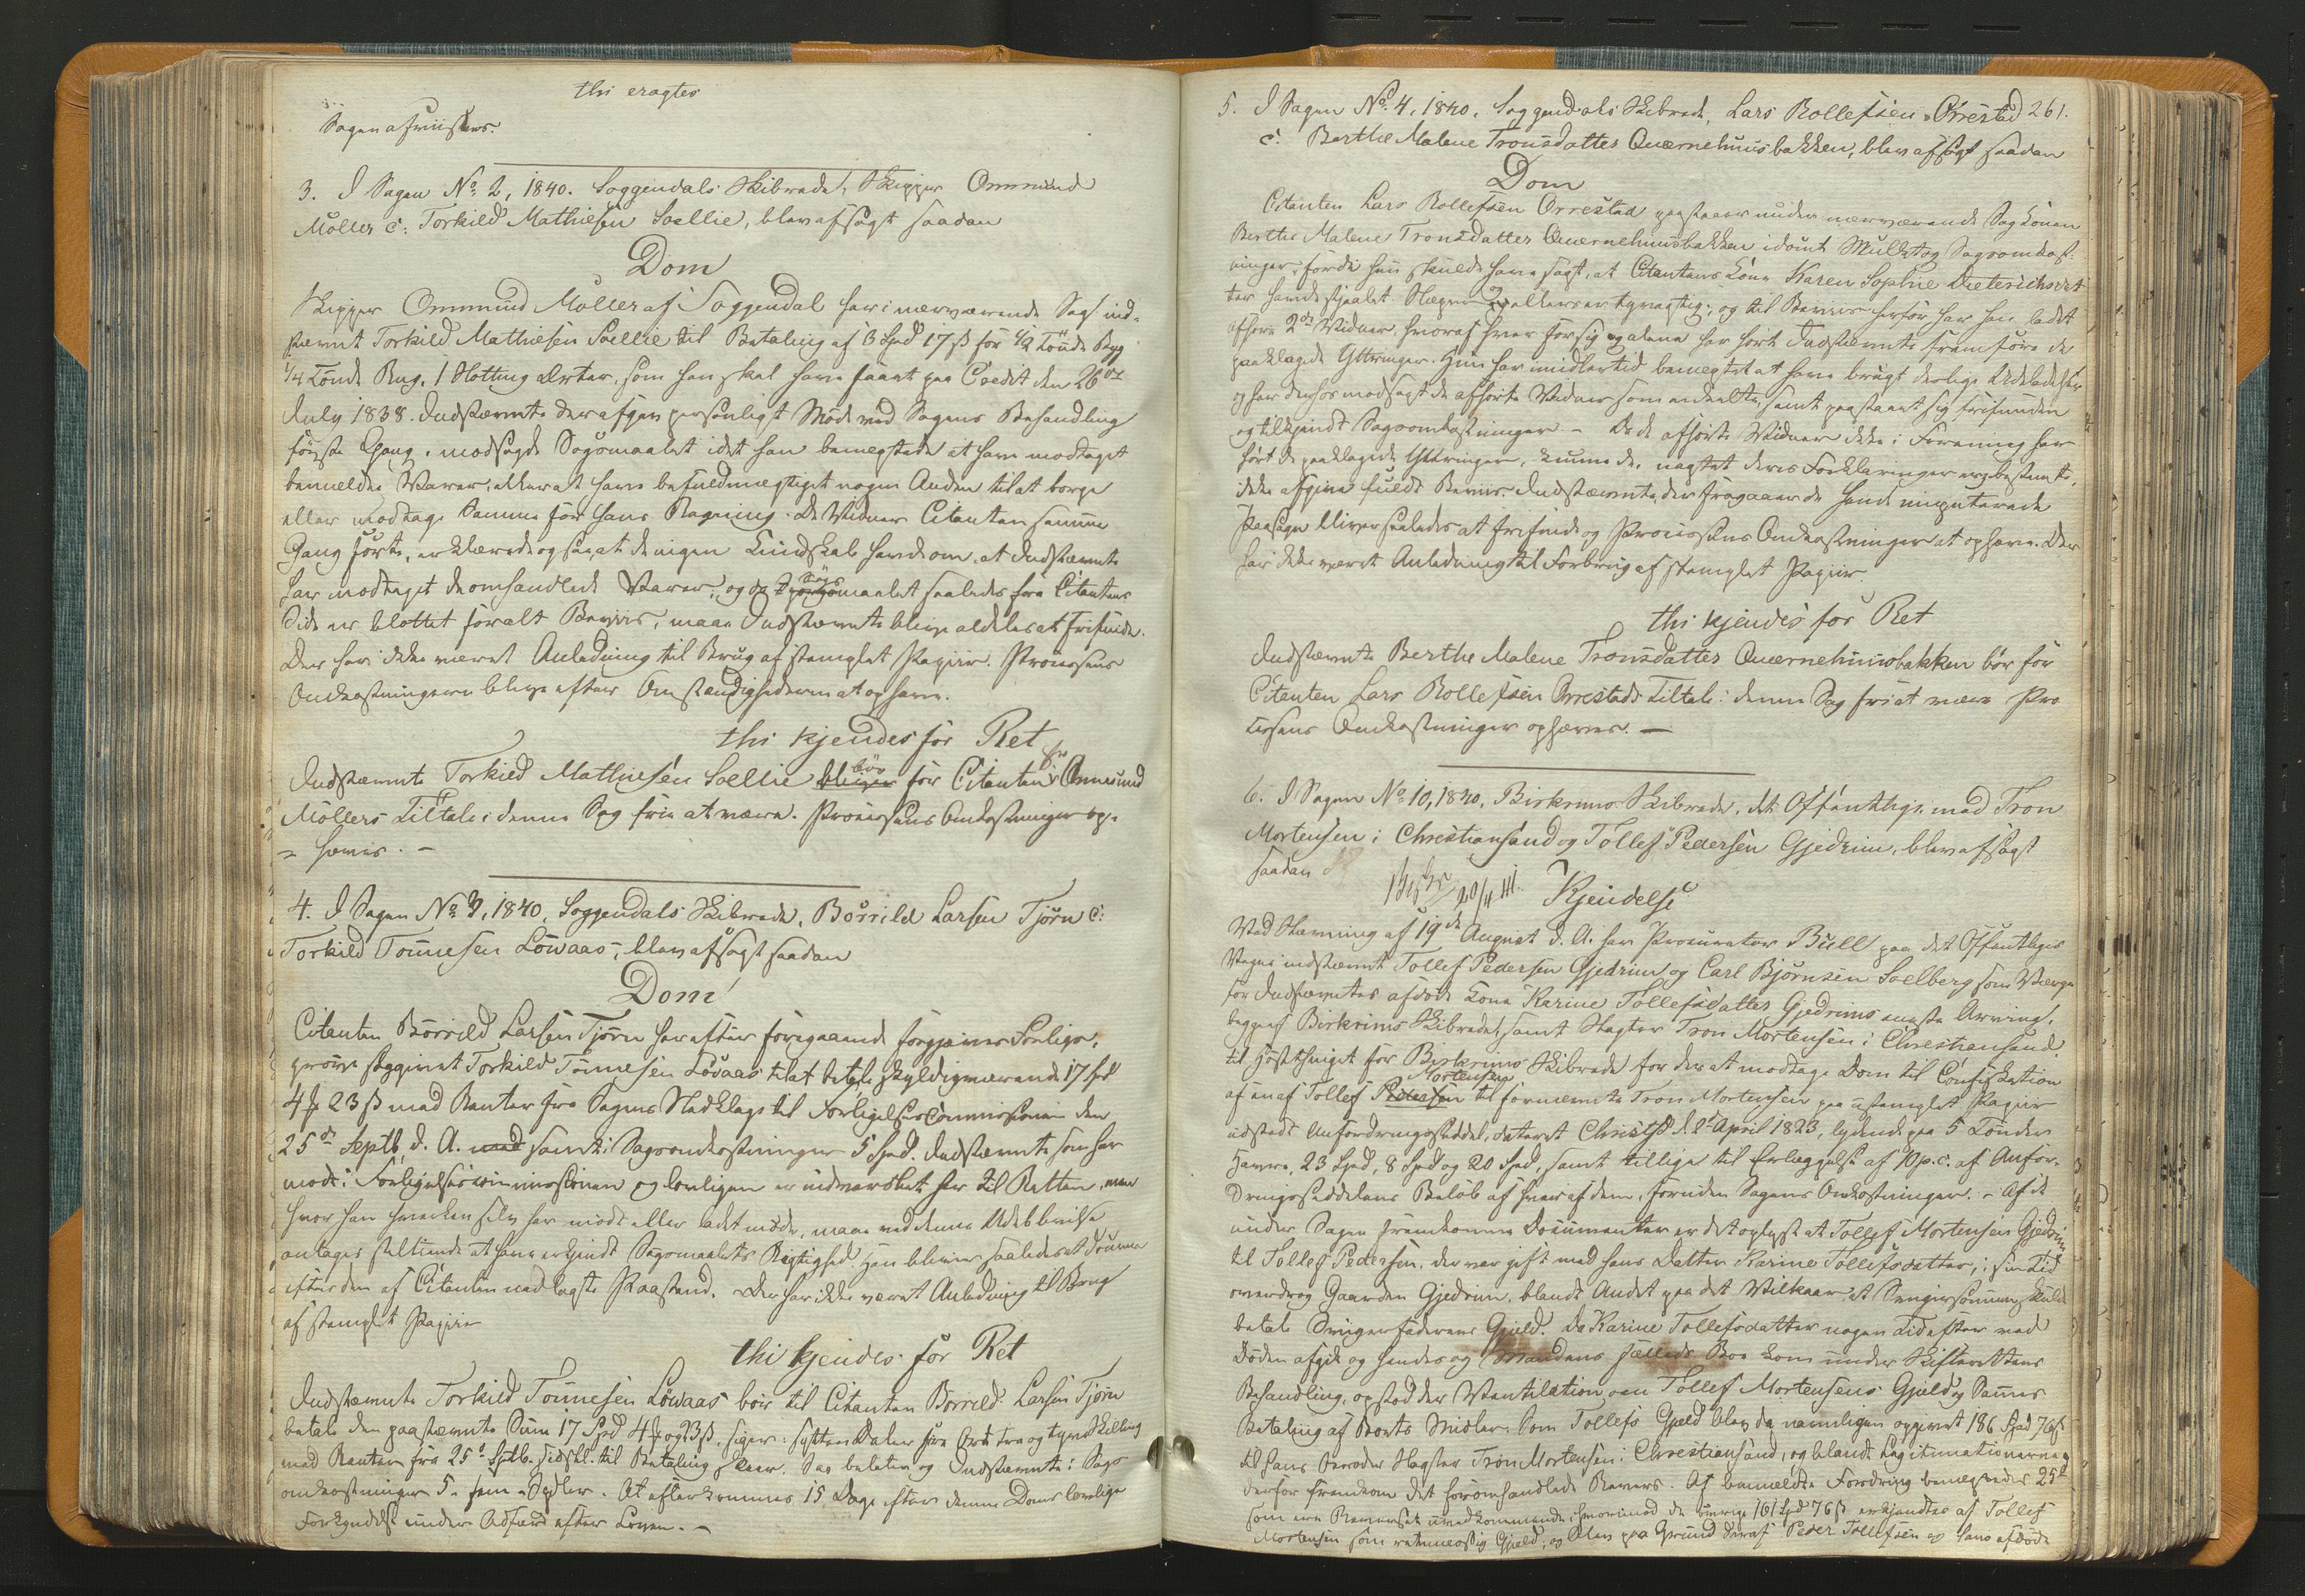 thi eragtes
Sagen afviises.
3. I Sagen No 2, 1840. Soggendals Skibrede, Skipper Ommund
Møller c: Torkild Mathiesen Soellie, blev afsagt saadan
Dom
Skipper Ommund Møller af Soggendal har i nærværende Sag ind-
stævnt Torkild Mathiesen Soellie til Betaling af 3 Spd 17 ß for 1/2 Tønde Byg
1/4 Tønde Rug, 1 Skotting Erter, som han skal have faaet paa Credit den 26de
July 1838. Indstævnte der afgav personligt Møde ved Sagens Behandling
første Gang, modsagde Søgsmaalet idet han benægtede at have modtaget
bemeldte Varer, eller at have befuldmægtiget nogen Anden til at borge
eller modtage Samme for hans Regning. De Vidner Citanten samme
Gang førte, erklærede ogsaa at de ingen Kundskab havde om, at Indstævnte
har modtaget de omhandlede Varer, og da Søgsmaalet saaledes fra Citantens
Side er blottet for alt Beviis, maae Indstævnte blive aldeles at frifinde.
Der har ikke været Anledning til Brug af stemplet Papiir. Processens
Omkostningerne blive efter Omstændighederne at ophæve.
thi kjendes for Ret
Indstævnte Torkild Mathiesen Soellie bliver bør for Citanten Ommund
Møllers Tiltale i denne Sag frie at være. Processens Omkostninger op-
= hæves. -
4. I Sagen No 3, 1840, Soggendals Skibrede, Børrild Larsen Tjørn c:
Torkild Tønnesen Løvaas, blev afsagt saadan
Dom
Citanten Børrild Larsen Tjørn har efter foregaaende forgjæves Forligs-
prøve sagsøgt Torkild Tønnesen Løvaas til at betale skyldigværende 17 Spd
4 # 23 ß med Renter fra Sagens Paaklage til Forligelsescommissionen den
25de Septb. d. A. med samt i Sagsomkostninger 5 Spd. Indstævnte som har
mødt i Forligelsescommissionen og lovligen er indvarslet her til Retten, men
hvor han hverken selv har mødt eller ladet møde, maae ved denne Udeblivelse
antages stiltiende at have erkjendt Søgsmaalets Rigtighed. Han bliver saaledes at dømme
efter den af Citanten nedlagte Paastand. Der har ikke været Anledning til Brug
af stemplet Papiir
thi kjendes for Ret
Indstævnte Torkild Tønnesen Løvaas bør til Citanten Børrild Larsen Tjørn
betale den paastævnte Sum 17 Spd 4 # og 23 ß, siger: sytten Daler fire Ort tre og tyve Skilling
med Renter fra 25de Septb. sidstl. til Betaling skeer. Saa betaler og Indstævnte i Sags-
omkostninger 5 - fem - Spdlr. At efterkommes 15 Dage efter denne Doms lovlige
Forkyndelse under Adfærd efter Loven. -
261.
5. I Sagen No 4, 1840, Soggendals Skibrede, Lars Rollefsen Ørrestad
c: Berthe Malene Tronsdatter Quærnehuusbakken, blev afsagt saadan
Dom
Citanten Lars Rollefsen Ørrestad paastaaer under nærværende Sag Konen
Berthe Malene Tronsdatter Quærnehuusbakken idømt Mulkt og Sagsomkost-
ninger, fordi hun skulde have sagt, at Citantens Kone Karen Sophie Dieterichsdat-
ter havde stjaalet og til Beviis herfor har han ladet
afhøre 2de Vidner, hvoraf hver for sig og alene har hørt Indstævnte fremføre de
paaklagede Yttringer. Hun har imidlertid benægtet at have brugt deslige Udeladelser
og har derhos modsagt de afhørte Vidner som eenkelte, samt paastaaet sig frifunden
og tilkjendt Sagsomkostninger. - Da de afhørte Vidner ikke i Forening har
hørt de paaklagede Yttringer, kunne de, uagtet deres Forklaringer ere bestemte,
ikke afgive fuldt Beviis. Indstævnte der fragaaer de hende imputerede
Paasagn bliver saaledes at frifinde og Processens Omkostninger at ophæve. Der
har ikke været Anledning til Forbrug af stemplet Papiir.
thi kjendes for Ret
Indstævnte Berthe Malene Tronsdatter Quærnehuusbakken bør for
Citanten Lars Rollefsen Ørrestads Tiltale i denne Sag fri at være. Pro-
cessens Omkostninger ophæves. -
6. I Sagen No 10, 1840, Birkrems Skibrede, det Offentlige mod Tron
Mortensen i Christiansand og Tollef Pedersen Gjedrim, blev afsagt
saadan
20/4 41. Kjendelse
Ved Stævning af 19de August d. A. har Procurator Bull paa det Offentliges
Vegne indstævnt Tollef Pedersen Gjedrim og Carl Bjørnsen Soelberg som Værge
for Indstævntes afdøde Kone Karine Tollefsdatter Gjedrims eneste Arving,
begge af Birkrims Skibrede, samt Slagter Tron Mortensen i Christiansand,
til Høstthinget for Birkrims Skibrede for der at modtage Dom til Confiskation
af en af Tollef Pedersen Mortensen til fornævnte Tron Mortensen paa ustemplet Papiir
udstedt Anfordringsseddel, dateret Christsd d. 2de April 1823, lydende paa 5 Tønder
Havre, 23 Spd, 8 Spd og 20 Spd, samt tillige til Erlæggelse af 10 p.c. af Anfor-
dringsseddelens Beløb af hver af dem, foruden Sagens Omkostninger. - Af de
under Sagen fremkomne Documenter er det oplyst at Tollef Mortensen Gjedrim
til Tollef Pedersen, der var gift med hans Datter Karine Tollefsdatter, i sin Tid
overdrog Gaarden Gjedrim, blandt Andet paa det Vilkaar, at Svigersønnen skulde
betale Svigerfaderens Gjæld. Da Karine Tollefsdatter nogen Tid efter ved
Døden afgik og hendes og Mandens fælleds Boe kom under Skifterettens
Behandling, opstod der Ventilation om Tollef Mortensens Gjæld og Sammes
Betaling af Boets Midler. Som Tollefs Gjæld blev da nemligen opgivet 186 Spd 76 ß
til hans Broder Slagter Tron Mortensen i Christiansand, og blandt Legitimationerne
derfor fremkom det foromhandlede Bevis. Af bemeldte Fordring benægtedes 25
som ere Beviset uvedkommende, hvorimod de øvrige 161 Spd 76 ß erkjendtes af Tollef
Mortensen som retmæssig Gjæld, og blev paa Grund deraf Peder Tollefsen og hans afdøde